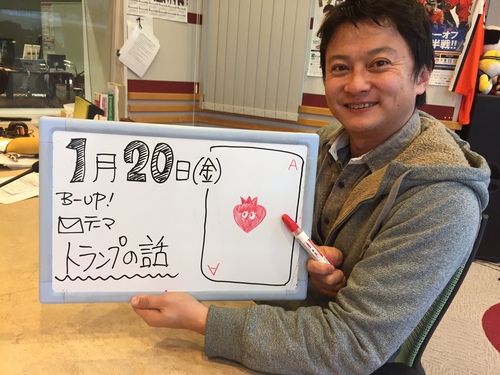 1月20日(金)
B-UP!
テーマ
トランプの話
A
A